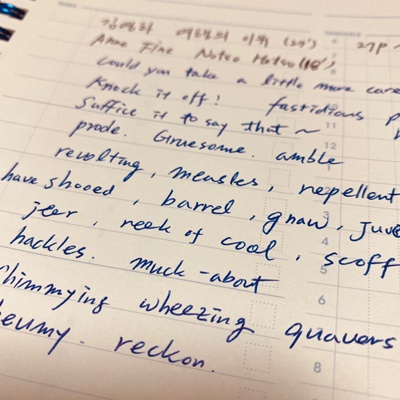 김영하 여행의 이유 (27')
Anne Fine Notso Hotso (18')
Could you take a little more care
Knock it off! fastidious
Suffice it to say that ~
prode. Gruesome. amble
revolting, measles, repellent
have shooed, barrel, gnaw,
jeer, reek of cool, scoff
hackles. muck-about
himmying wheezing quavers
heumy. reckon.
27P ~
11
12
1
3
4
5
6
8